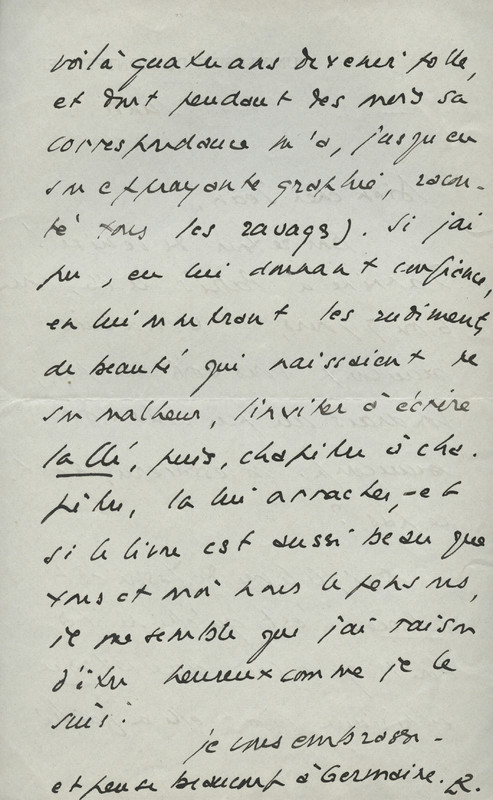 voilà quatre ans devenir folle,
et dont pendant des mois sa
correspondance m'a, jusqu'en
son effrayante graphie, racon-
té tous les ravages). Si j'ai
pu, en lui donnant confiance,
en lui montrant les rudiments
de beauté qui naissaient de
son malheur, l'inviter à écrire
la Clé, puis, chapitre à cha-
pitre, la lui arracher, - et
si le livre est aussi beau que
vous et moi nous le pensons,
il me semble que j'ai raison
d'être heureux comme je le
suis.
je vous embrasse -
et pense beaucoup à Germaine. R.